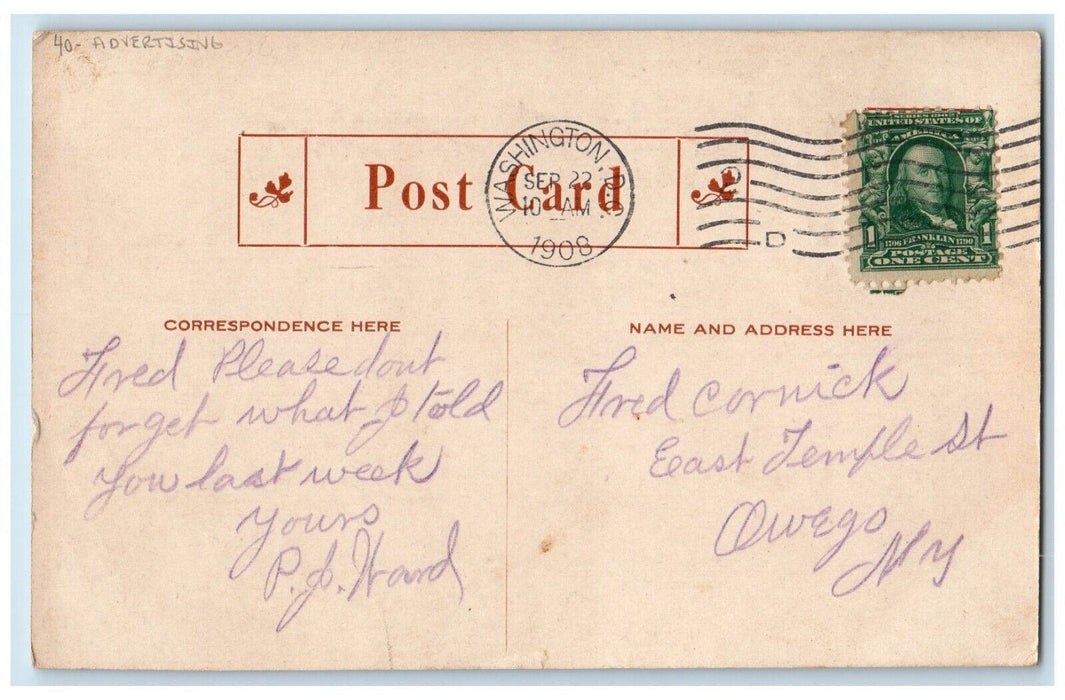 40- ADVERTISING
Post Card
WASHINGTON, D.C.
SEP 22
10 AM
1908
D
SERIES 1902
UNITED STATES OF
AMERICA
1 1706 FRANKLIN 1790 1
POSTAGE
ONE CENT
CORRESPONDENCE HERE
Fred Please dont
forget what I told
you last week
yours
P. J. Ward
NAME AND ADDRESS HERE
Fred Cornick
East Temple St
Owego
N y